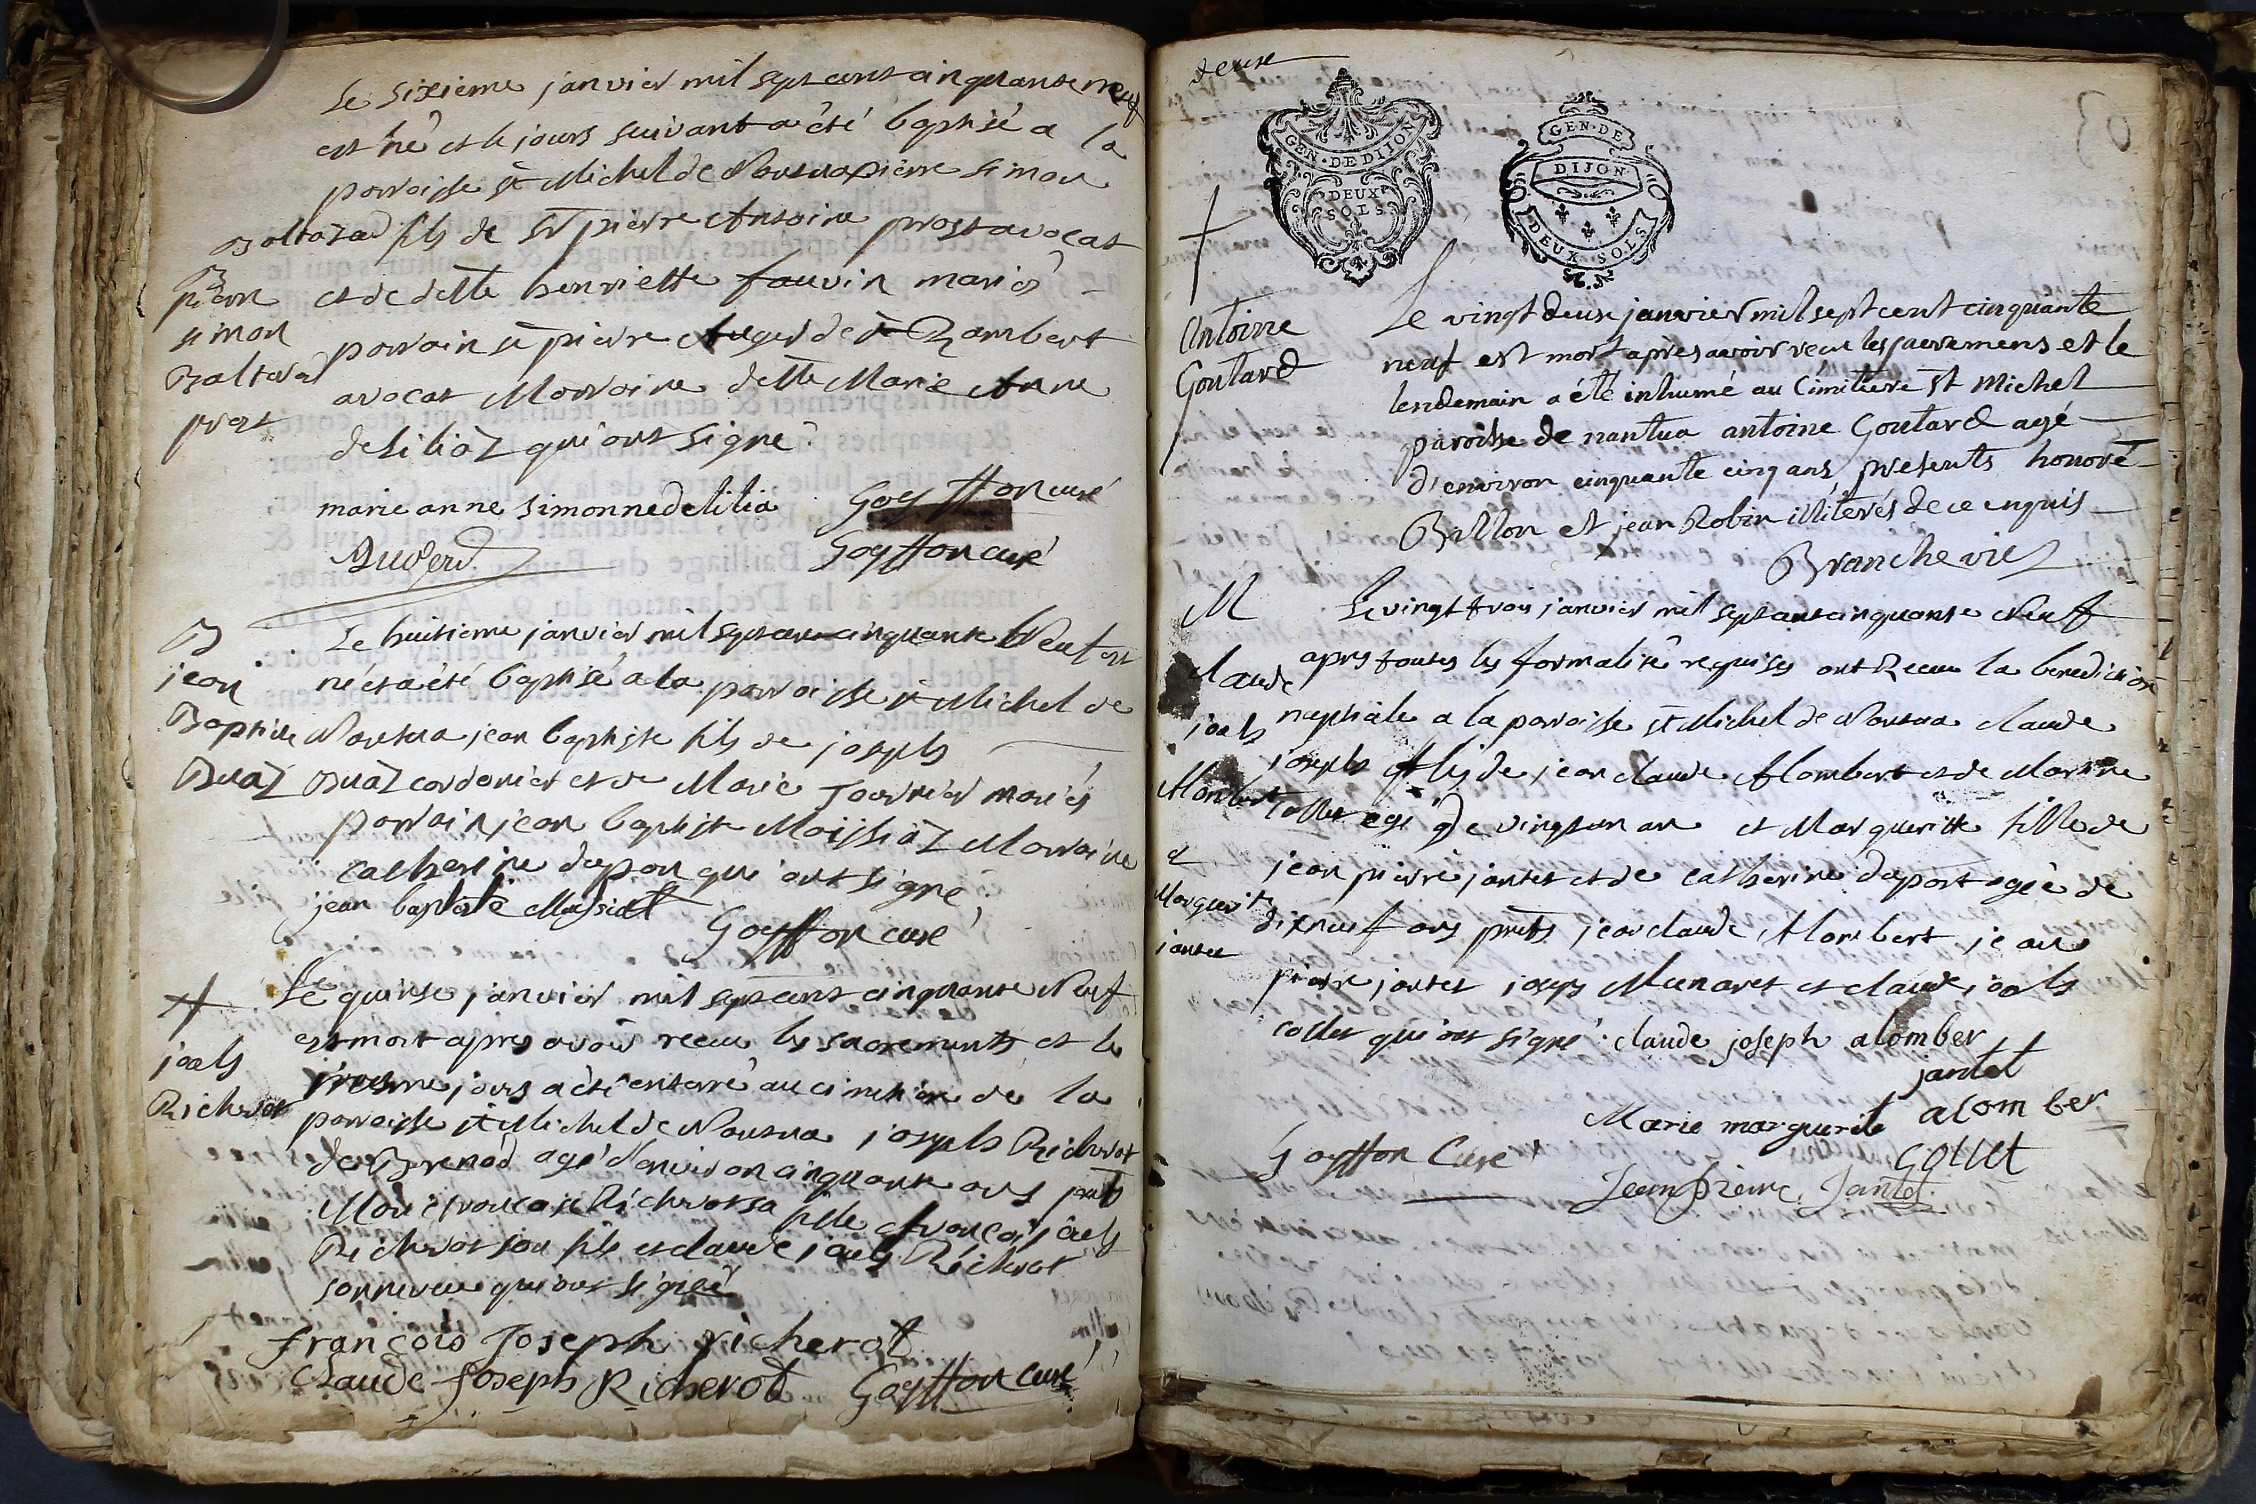 Le sixieme janvier mil sept cent cinquante neuf
est né et le jours suivant a été baptisé a la
parroisse st Michel de Nantua pierre simon
Baltazad fils de sr pierre Antoine prost avocat
et de delle henriette fauvin mariés
parrain sr pierre Augerd de st Rambert
avocat Marraine delle Marie Anne
deliliaz qui ont signé
B
pierre
simon
Baltazad
prost
marie anne simonne de lilia Goyffon curé
Augerd Goyffon curé
B
jean
Baptiste
Buaz
Le huitieme janvier mil sept cent cinquante Neuf est
né et a été baptisé a la parroisse st Michel de
Nantua jean baptiste fils de joseph
Buaz cordonier et de Marie Tournier mariés
parrain jean baptiste Maissiaz Marraine
catherine dapon qui ont signé
jean baptiste Massiat
Goyffon curé
josph
Richerot
Le quinse janvier mil sept cent cinquante Neuf
est mort apres avoir receu les sacrements et le
jours a été enterré au cimetiere de la
parroisse st Michel de Nantua joseph Richerot
de Brenod agé d'environ cinquante ans pnts
Marie francoise Richerot sa fille francois josph
Richerot son fils et claude josph Richerot
son neveu qui ont signé
françois Joseph richerot
Claude Joseph Richerot Goyffon curé
deux
GEN·DE DIJON
DEUX
SOLS
GEN·DE
DIJON
DEUX·SOLS
Antoine
Goutard
Le vingt deux janvier mil sept cent cinquante
neuf est mort apres avoir recu les sacremens et le
lendemain a été inhumé au Cimitiere st Michel
paroisse de nantua antoine Goutard agé
d'environ cinquante cinq ans, presents honoré
Billon et jean Robin illiterés de ce enquis
Branche vic
M
claude
josph
Alombert
et
Marguerite
jantet
Le vingt trois janvier mil sept cent cinquante Neuf
apres toutes les formalité requises ont Receu la benediction
nuptiale a la parroisse st Michel de Nantua claude
joseph fils de jean claude Alombert et de Marine
collet agé de vingt un an et Marguerite fille de
jean pierre jantet et de catherine daport agée de
dix neuf ans pnts jean claude Alombert jean
pierre jantet joseph Munaret et claude josph
collet qui ont signé claude joseph alomber
jantet
Marie marguerite alomber
Goyffon Curé Collet
Jean pierre Jantet